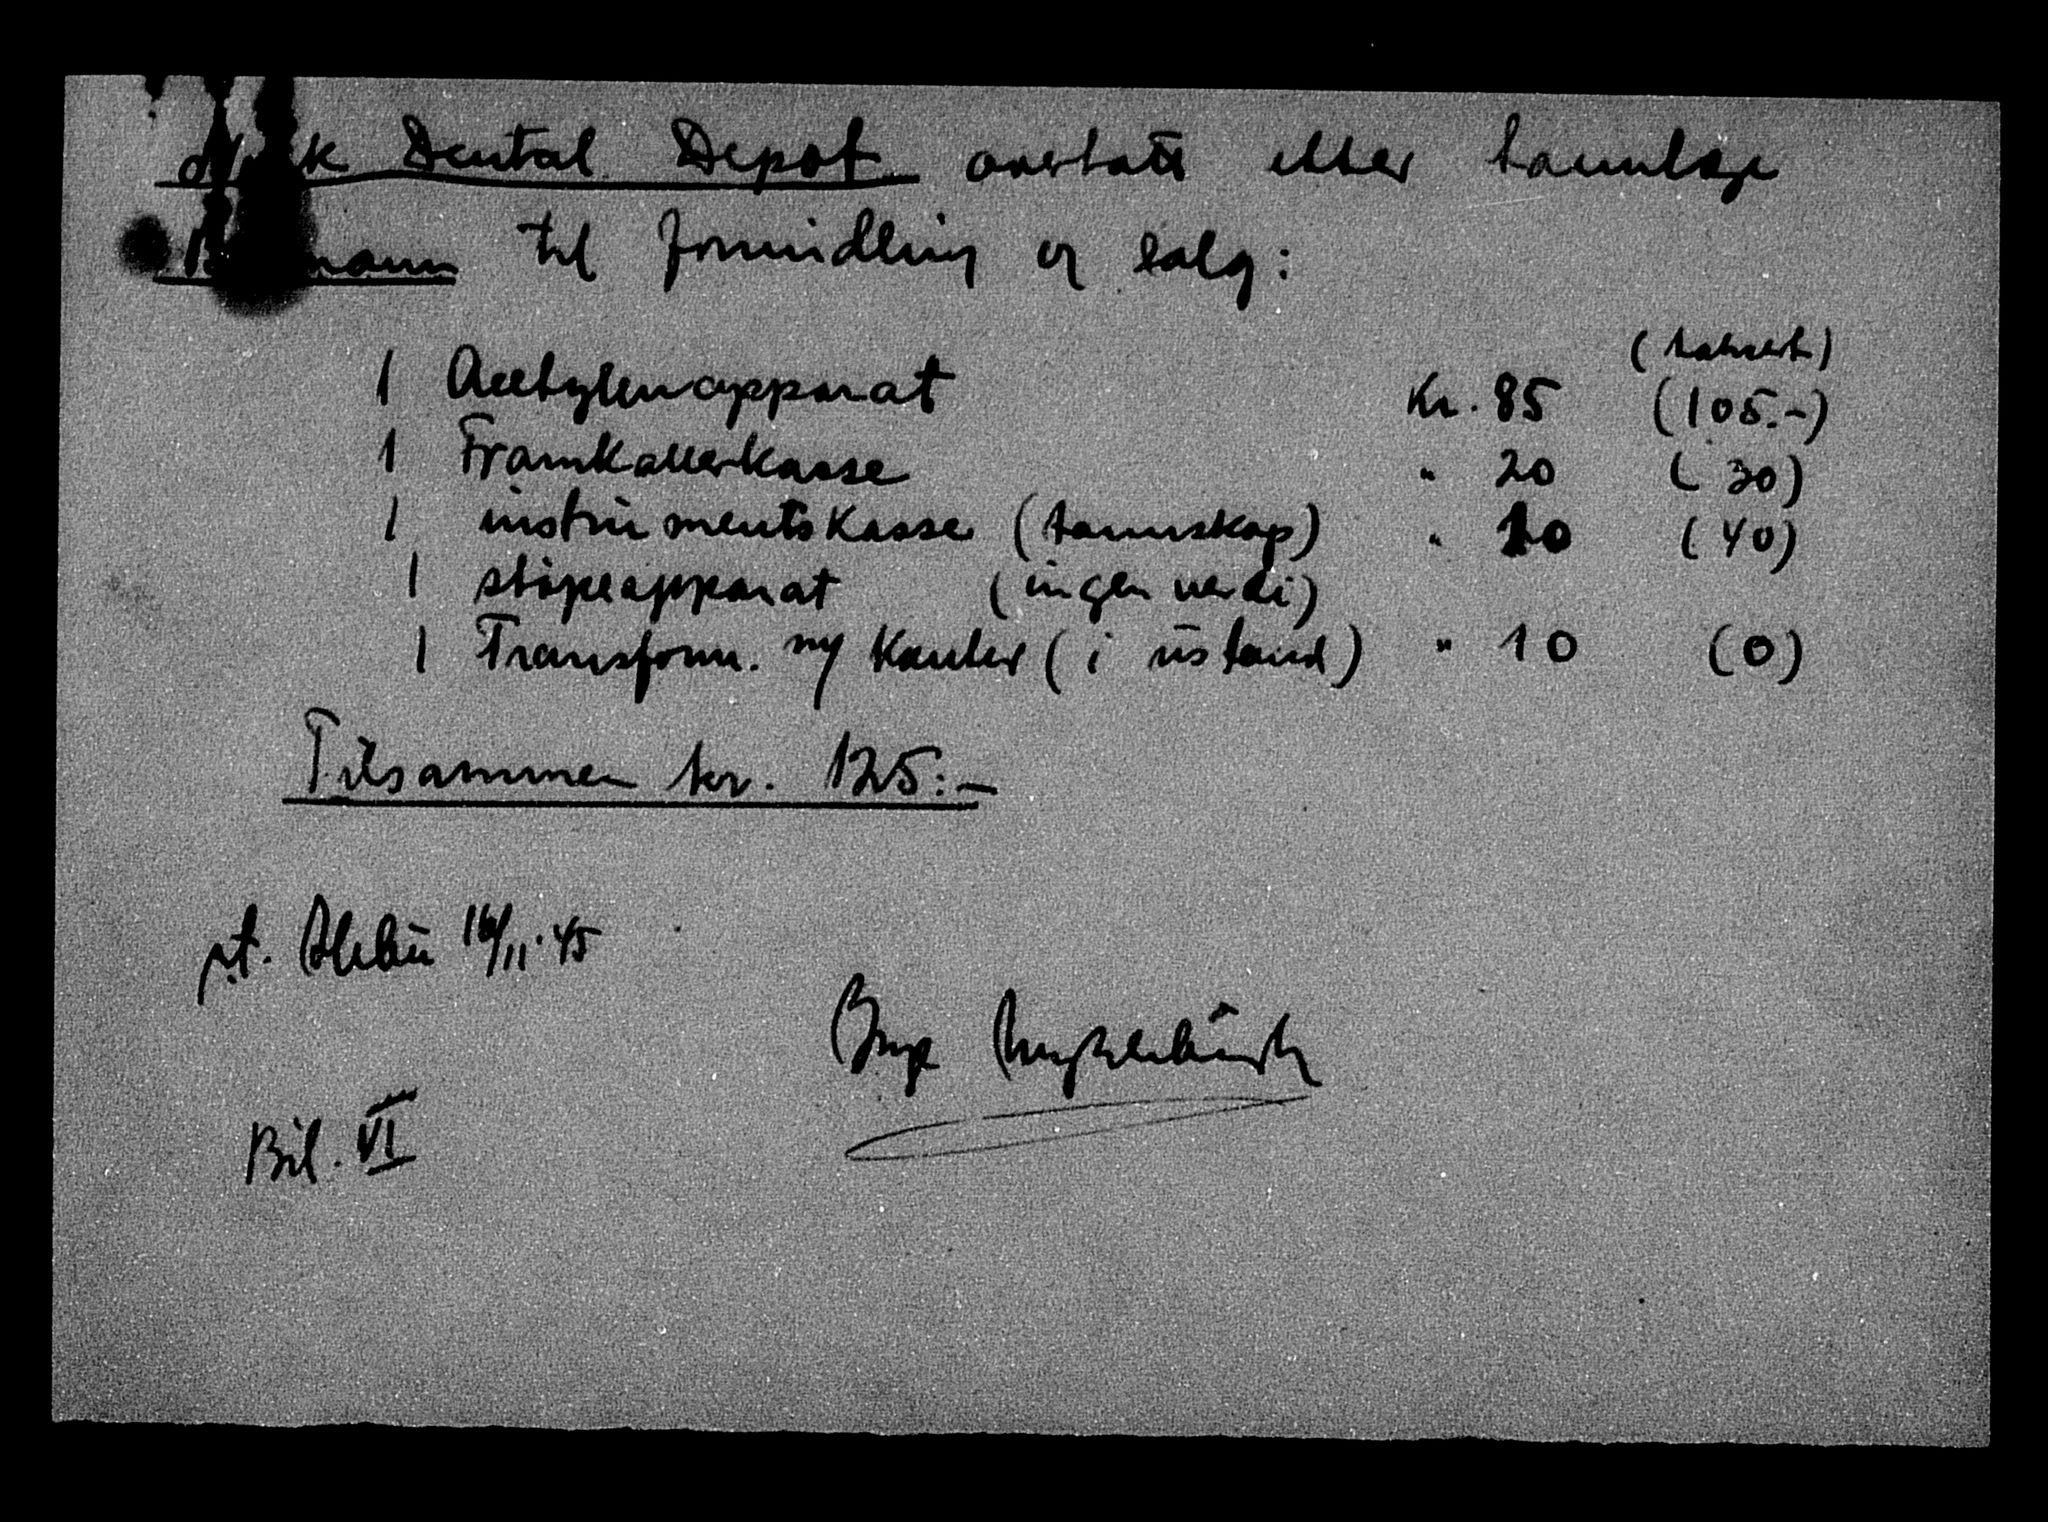 Dental Depot overtatt etter tannlæge
til formidling og salg:
(taksert)
1 Acetylenapparat Kr. 85 (105.-)
1 Framkallerkasse " 20 (30)
1 instrumentskasse (tannskap) " 10 (40)
1 støpeapparat (ingen verdi)
1 Transform. (i ustand) " 10 (0)
Tilsammen kr. 125:-
p.t. 16/11.45
Bil. VI